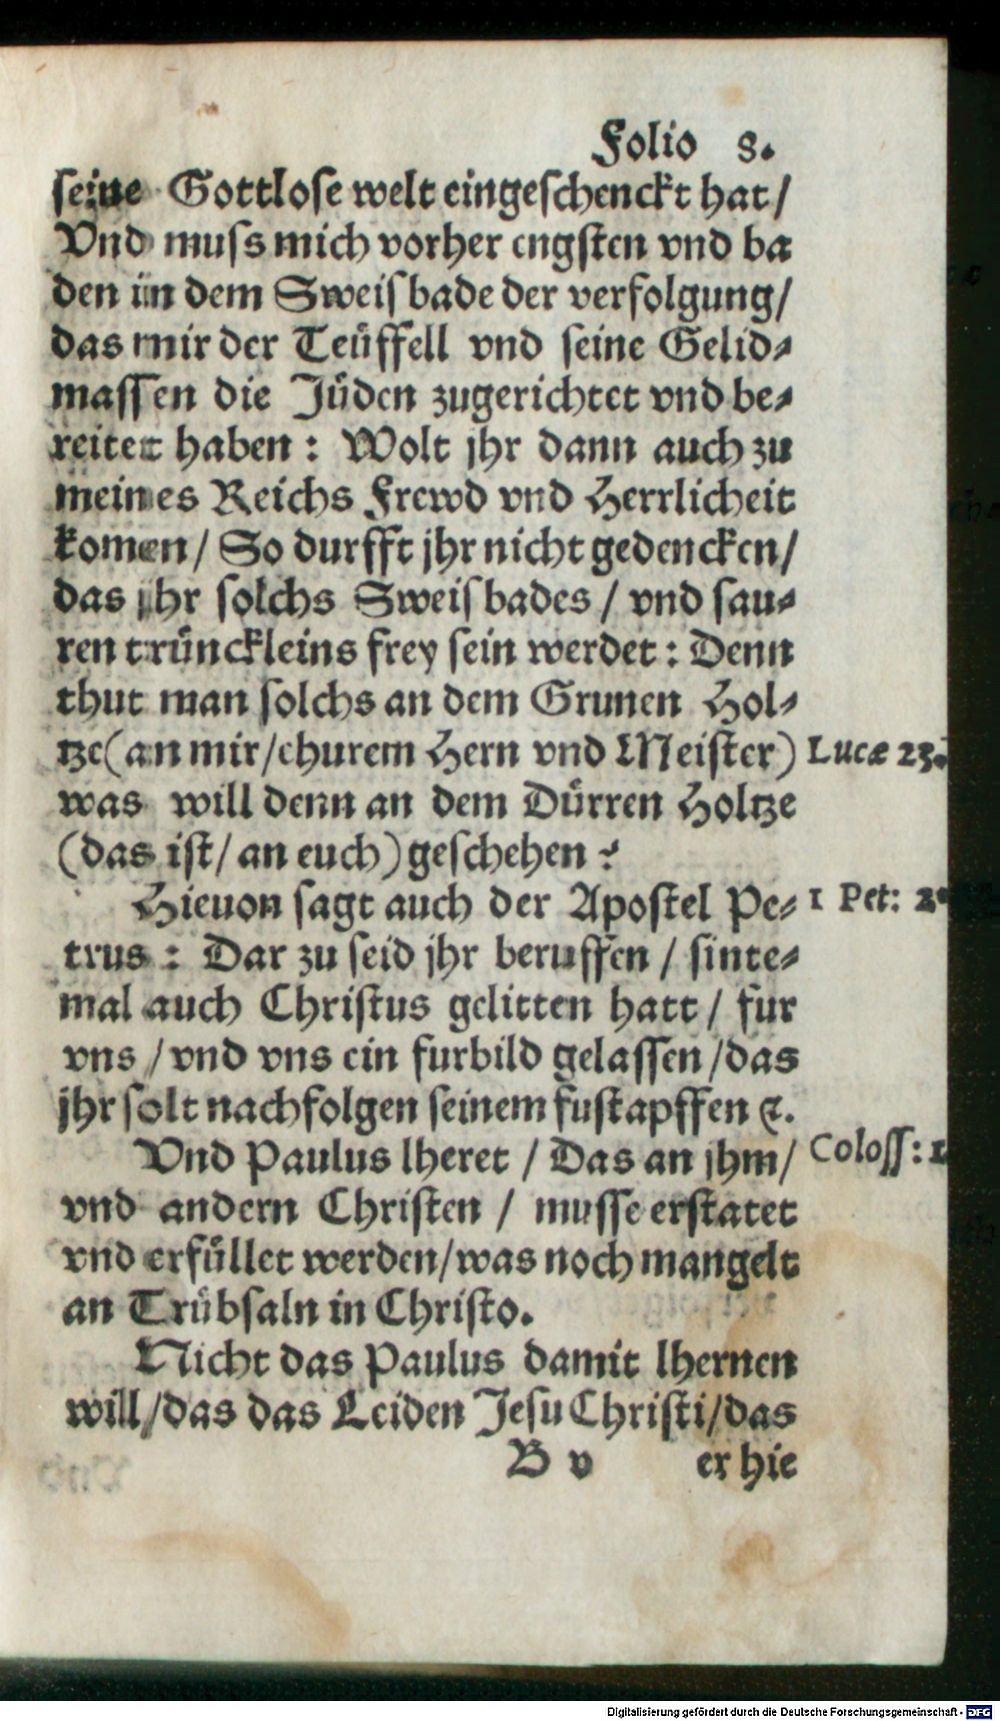 Folio 8.
seine Gottlose welt eingeschenckt hat/
Vnd muss mich vorher engsten vnd ba
den in dem Sweisbade der verfolgung/
das mir der Teüffell vnd seine Gelid-
massen die Jüden zugerichtet vnd be-
reitet haben: Wolt jhr dann auch zu
meines Reichs Frewd vnd Herrlicheit
komen/ So durfft jhr nicht gedencken/
das jhr solchs Sweisbades/ vnd sau-
ren trünckleins frey sein werdet: Denn
thut man solchs an dem Grunen Hol-
tze(an mir/churem Hern vnd Meister) Lucæ 23.
was will denn an dem Dürren Holtze
(das ist/ an euch) geschehen?
Hieuon sagt auch der Apostel Pe- 1 Pet: 2.
trus: Dar zu seid jhr beruffen/ sinte-
mal auch Christus gelitten hatt/ fur
vns/ vnd vns ein furbild gelassen/das
jhr solt nachfolgen seinem fustapffen ꝛc.
Vnd Paulus lheret/ Das an jhm/ Coloss: 1
vnd andern Christen/ musse erstatet
vnd erfüllet werden/was noch mangelt
an Trübsaln in Christo.
Nicht das Paulus damit lhernen
will/das das Leiden Jesu Christi/das
B v er hie
Digitalisierung gefördert durch die Deutsche Forschungsgemeinschaft - DFG